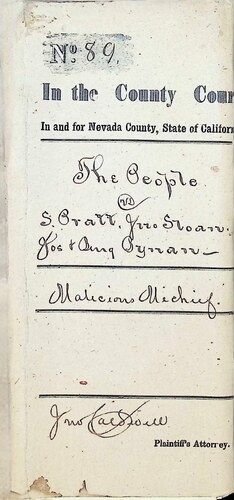 No. 89.
In the County Cour
In and for Nevada County, State of Californ
The People
vs
S. Pratt, Jno Sloan.
Jos & Aug Tynan
Malicious Michief.
Jno Caldwell
Plaintiff's Attorney.